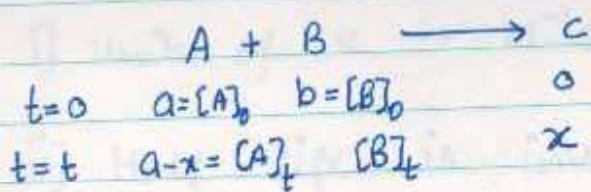 A + B ⟶ C
t=0 a=[A]₀ b=[B]₀ 0
t=t a-x=[A]ₜ [B]ₜ x